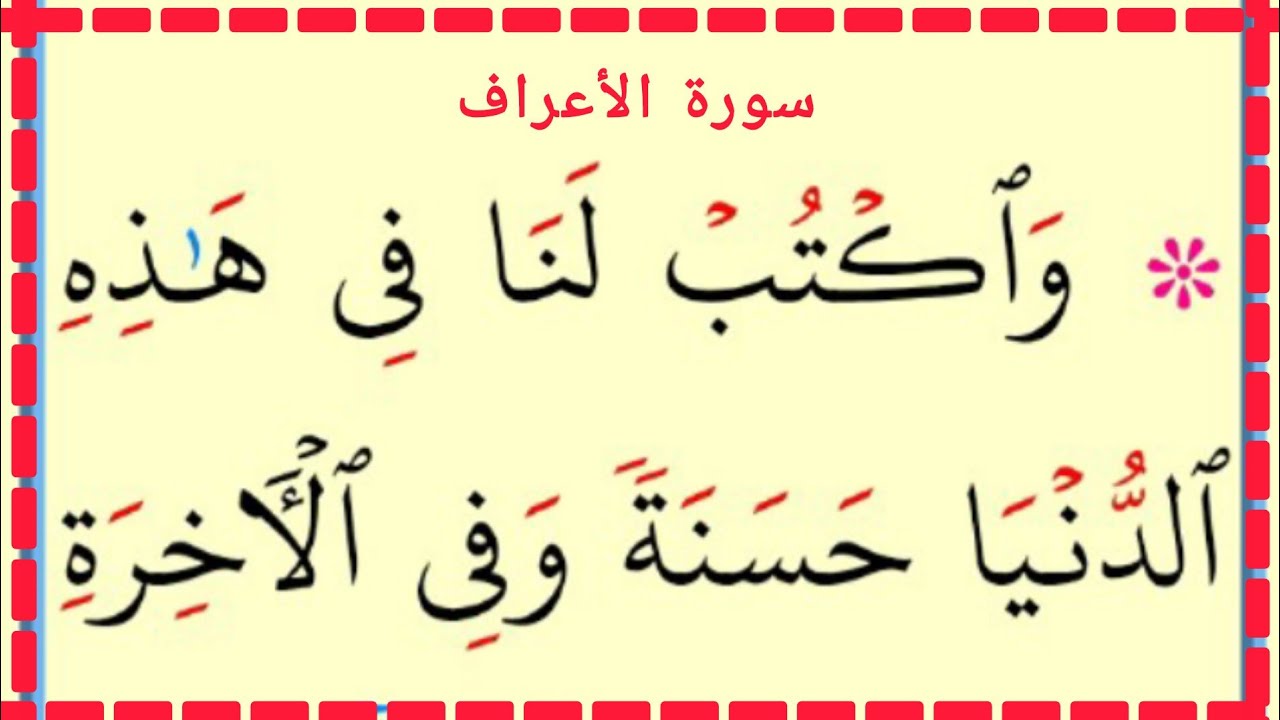 سورة الأعراف
۞ وَٱكْتُبْ لَنَا فِي هَـٰذِهِ
ٱلدُّنْيَا حَسَنَةً وَفِي ٱلْأَخِرَةِ